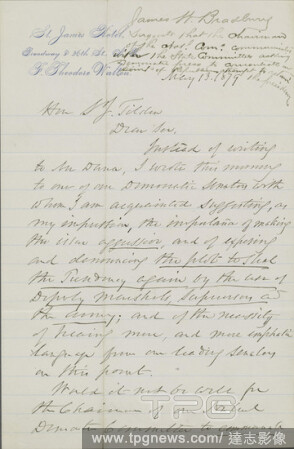 James W. Bradbury
St. James Hotel,
Suggests that the Chairman
Broadway & 26th St.
of the Nat. Com. communicate
with the State Committees asking
Democratic
F. Theodore Walton
May 13. 1879.
Hon S. J. Tilden
Dear Sir,
Instead of writing
to Mr Dana, I wrote this morning
to one of our Democratic Senators with
whom I am acquainted suggesting as
my impression, the importance of making
the issue aggressive, and of exposing
and denouncing the plot to steal
the Presidency again by the use of
Deputy Marshals, Supervisors and
the army; and of the necessity
of hearing more, and more emphatic
language from our leading Senators
on this point.
Would it not be well for
the Chairman of our
Democratic Committee to
TPG
www.tpgnews.com / 達志影像